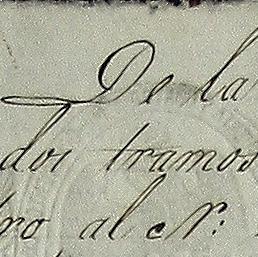 De la
dos tramos
ro al N: